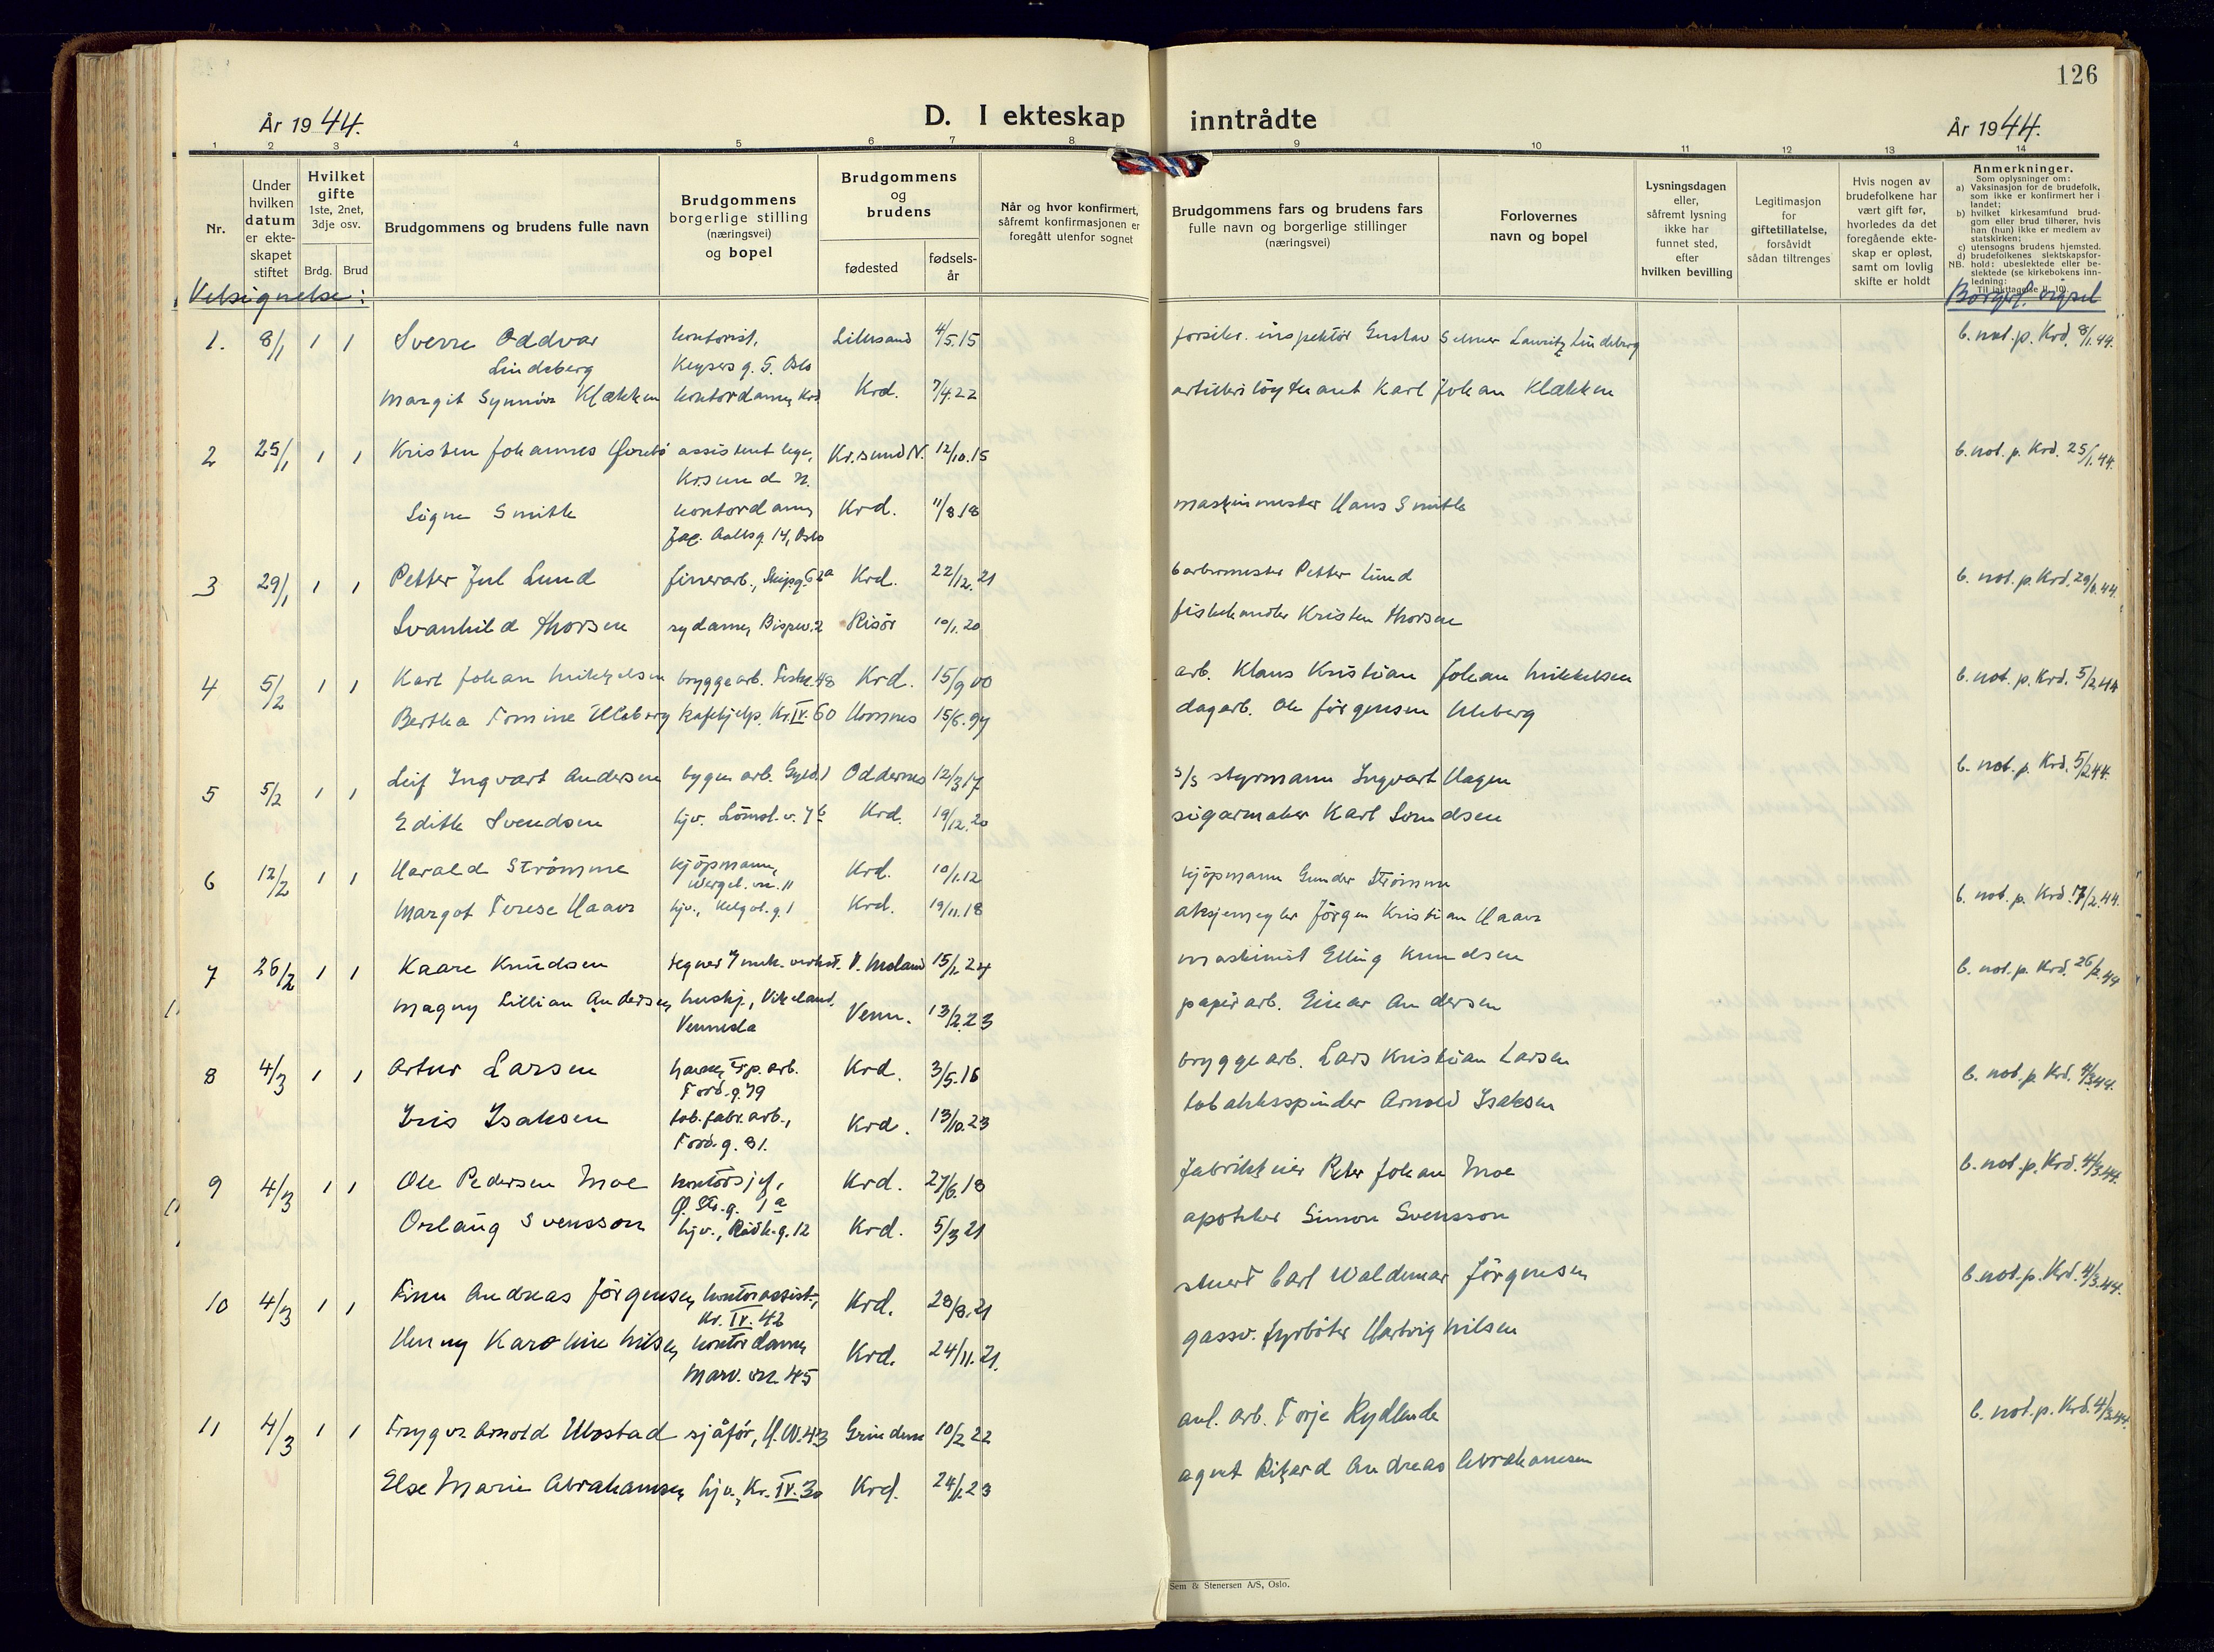 126
År 1944.
D. I ekteskap inntrådte
År 1944.
1 2 3 4 5 6 7 8 9 10 11 12 13 14
Nr.
Under hvilken datum er ekteskapet stiftet
Hvilket gifte
1ste, 2net, 3dje osv.
Brdg. Brud
Brudgommens og brudens fulle navn
Brudgommens borgerlige stilling (næringsvei) og bopel
Brudgommens og brudens
fødested
fødselsår
Når og hvor konfirmert, såfremt konfirmasjonen er foregått utenfor sognet
Brudgommens fars og brudens fars fulle navn og borgerlige stillinger (næringsvei)
Forlovernes navn og bopel
Lysningsdagen eller, såfremt lysning ikke har funnet sted, efter hvilken bevilling
Legitimasjon for giftetillatelse, forsåvidt sådan tiltrenges
Hvis nogen av brudefolkene har vært gift før, hvorledes da det foregående ekteskap er opløst, samt om lovlig skifte er holdt
Anmerkninger.
Som oplysninger om:
a) Vaksinasjon for de brudefolk, som ikke er konfirmert her i landet;
b) hvilket kirkesamfund brudgom eller brud tilhører, hvis han (hun) ikke er medlem av statskirken;
c) utensogns brudens hjemsted.
d) brudefolkenes slektskapsforhold: ubeslektede eller beslektede (se kirkebokens innledning:
NB.
Velsignelse:
Borgerl. vigsel
1. 8/1 1 1 Sverre Oddvar kontorist, Lillesand 4/5.15 forsikr. inspektör Gustav Selmer Lauritz Lindeberg b. not. p. Krd. 8/1.44.
Lindeberg Keysers g. 5. Oslo
Margit Synnöve Klækken kontordame, Krd. Krd. 7/4.22 artilleri löytnant Karl Johan Klækken
2 25/1 1 1 Kristen Johannes assistentlege, Kr.sund N. 12/10.15 b. not. p. Krd. 25/1.44.
Kr.sund N.
Signe Smith kontordame Krd. 11/8.18 maskinmester Hans Smith
Jac. Aallsg. 14, Oslo
3 29/1 1 1 Petter Jul Lund finerarb., Skipsg. 62a Krd. 22/12.21 barbermester Petter Lund b. not. p. Krd. 29/1.44.
Svanhild Thorsen sydame, Bispev. 2 Risör 10/1.20 fiskehandler Kristen Thorsen
4 5/2 1 1 Karl Johan Mikkelsen bryggearb. Festn. 48 Krd. 15/9 00 arb. Klaus Kristian Johan Mikkelsen b. not. p. Krd. 5/2.44
Bertha Tomine Uleberg kafehjelp. Kr. IV. 60 Hornnes 15/6.99 dagarb. Ole Jörgensen Uleberg
5 5/2 1 1 Leif Ingvart Andersen bygn. arb. Gyld. 1 Oddernes 12/3 17 s/s styrmann Ingvart Hagen b. not. p. Krd. 5/2 44.
Edith Svendsen hjv. Lömsl. v. 7b Krd. 19/12.20 sigarmaker Karl Svendsen
6 12/2 1 1 Harald Strömme kjöpmann, Krd. 10/1.12 kjöpmann Gunder Strömme b. not. p. Krd. 12/2.44.
Wergel. vn. 11
Margot Terese Haave hjv., Helgol. g. 1 Krd. 19/11.18 aksjemegler Jörgen Kristian Haave
7 26/2 1 1 Kaare Knudsen V. Moland 15/1.24 maskinist Elling Knudsen b. not. p. Krd. 26/2.44
Magny Lillian Andersen, hushj., Vikeland, Venn. 13/2.23 papirarb. Einar Andersen
Vennesla
8 4/3 1 1 Artur Larsen Krd. 3/5.16 bryggearb. Lars Kristian Larsen b. not. p. Krd. 4/3.44.
Tord. g. 79
Iris Isaksen tob. fabr. arb., Krd. 13/10.23 tobakksspinder Arnold Isaksen
Tord. g. 81.
9 4/3 1 1 Ole Pedersen Moe kontorsjef, Krd. 27/6.18 fabrikkeier Peter Johan Moe b. not. p. Krd. 4/3.44.
Ö. Str. g. 1a
Orlaug Svensson hjv., Rådh. g. 12 Krd. 5/3 21 apoteker Simon Svensson
10 4/3 1 1 Finn Andreas Jörgensen, kontorassist., Krd. 28/8.21 stuert Carl Waldemar Jörgensen b. not. p. Krd. 4/3.44.
Kr. IV. 42
Henny Karoline Nilsen, kontordame, Krd. 24/11.21. gassv. fyrböter Hartvig Nilsen
Marv. vn. 45
11 4/3 1 1 Trygve Arnold Ubostad sjåför, H. W. 43 Grindum 10/2 22 anl. arb. Torje Rydlende b. not. p. Krd. 4/3.44.
Else Marie Abrahamsen, hjv., Kr. IV. 30 Krd. 24/1.23 agent Rikard Andreas Abrahamsen
Sem & Stenersen A/S, Oslo.